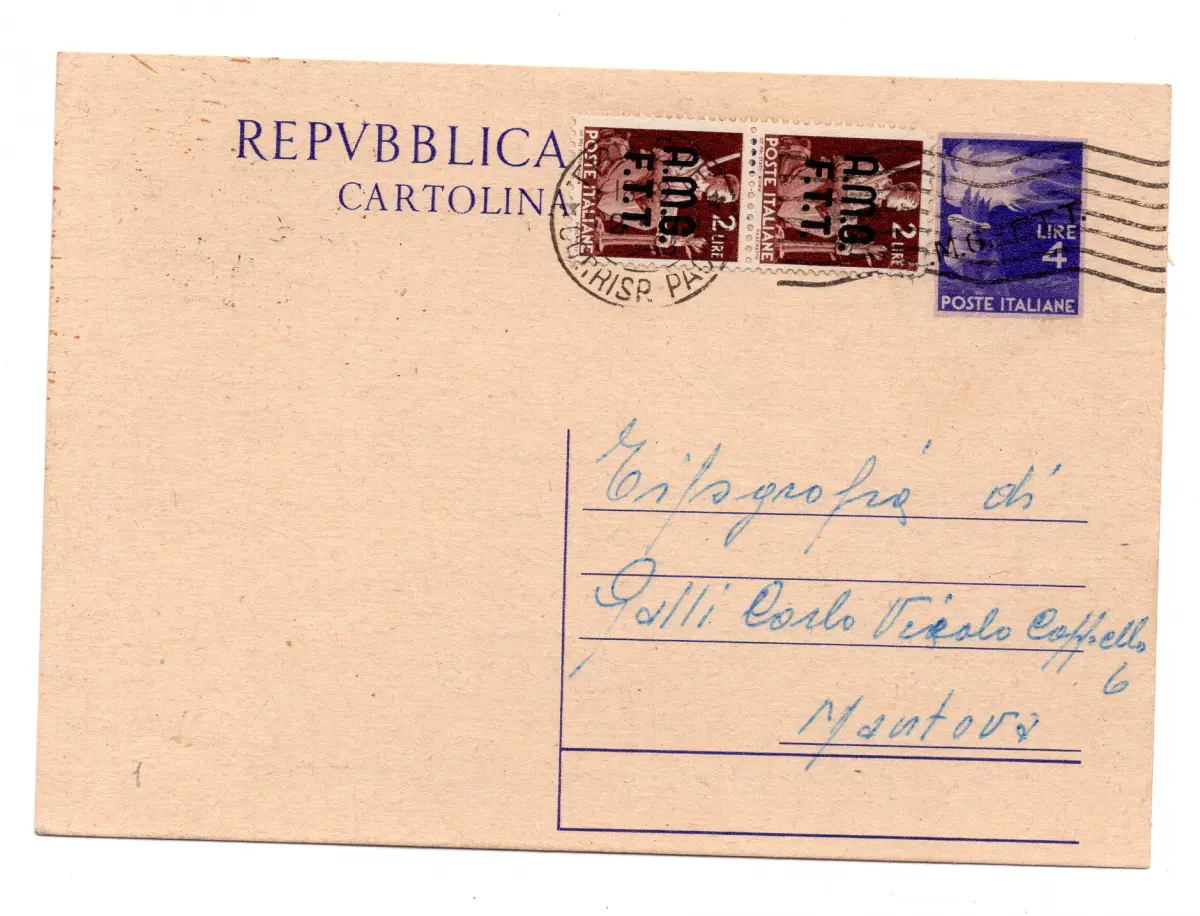 REPVBBLICA
CARTOLINA
POSTE ITALIANE
A.M.G.
F.T.T.
2 LIRE
POSTE ITALIANE
A.M.G.
F.T.T.
2 LIRE
.M.G. F.T.T.
LIRE
4
POSTE ITALIANE
CORRISP PA
Tipografia di
Galli Carlo Vicolo Cappello
6
Mantova
1